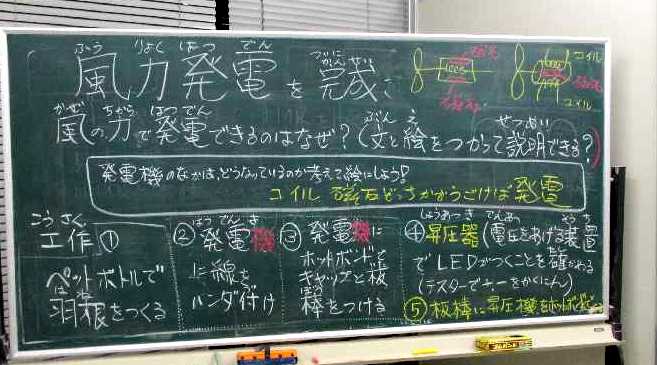 ふう りょく はつ でん
風力発電を完成
かぜ ちから はつ でん ぶん え せつめい
風の力で発電できるのはなぜ?(文と絵をつかって説明できる?)
コイル
磁石
コイル
発電機のなかは、どうなっているのか考えて絵にしよう!
コイル 磁石どっちかがうごけば発電
こう さく
工作①
ペットボトルで
はね
羽根をつくる
はつ でん き
②発電機
に線を
ハンダ付け
③発電機に
ホットボンドで
キャップと板
ぼう
棒をつける
しょうあつ き でんあつ そう ち
④昇圧器(電圧をあげる装置
でLEDがつくことを確かめる
⑤板棒に昇圧機をホットボンド